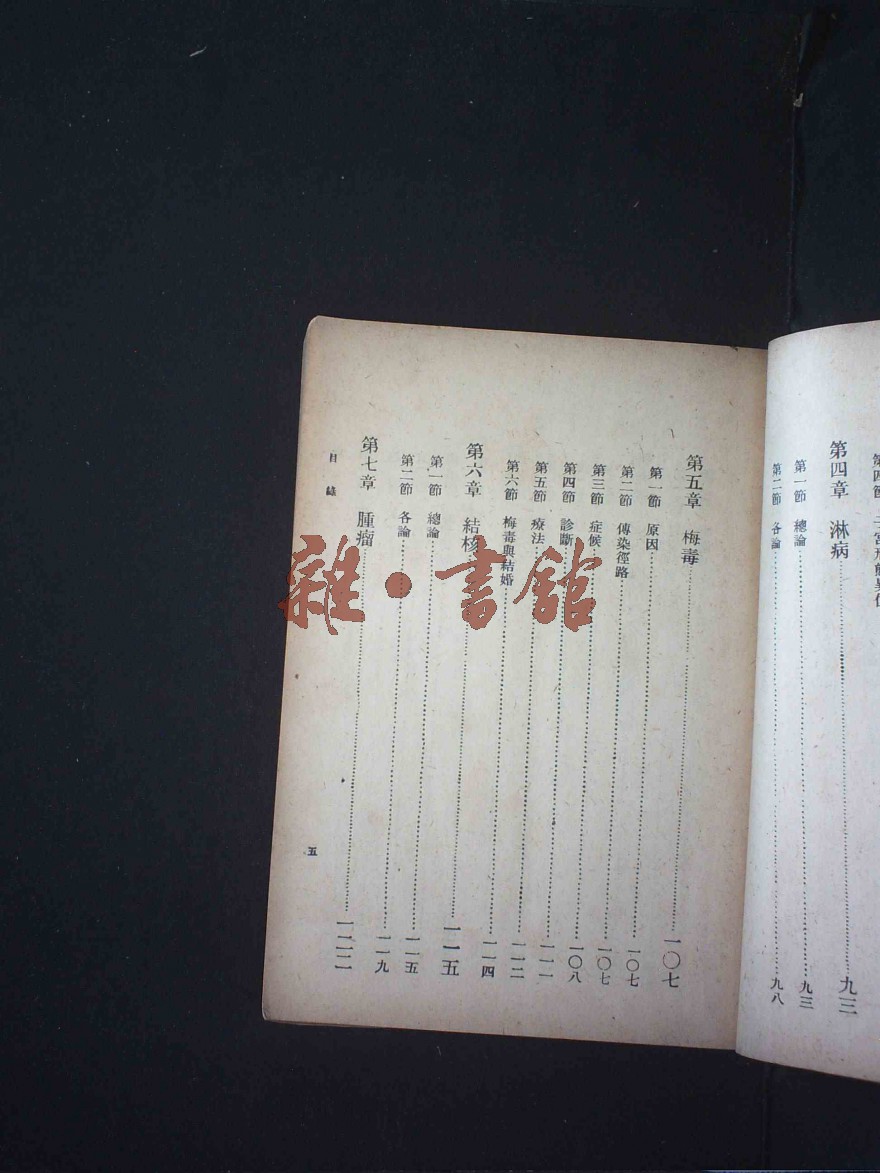 第四章 淋病……九三
第一節 總論……九三
第二節 各論……九八
第五章 梅毒……一〇七
第一節 原因……一〇七
第二節 傳染徑路……一〇七
第三節 症候……一〇八
第四節 診斷……一一一
第五節 療法……一一二
第六節 梅毒與結婚……一一四
第六章 結核……一一五
第一節 總論……一一五
第二節 各論……一一九
第七章 腫瘤……一二二
目錄
五
雜·書館